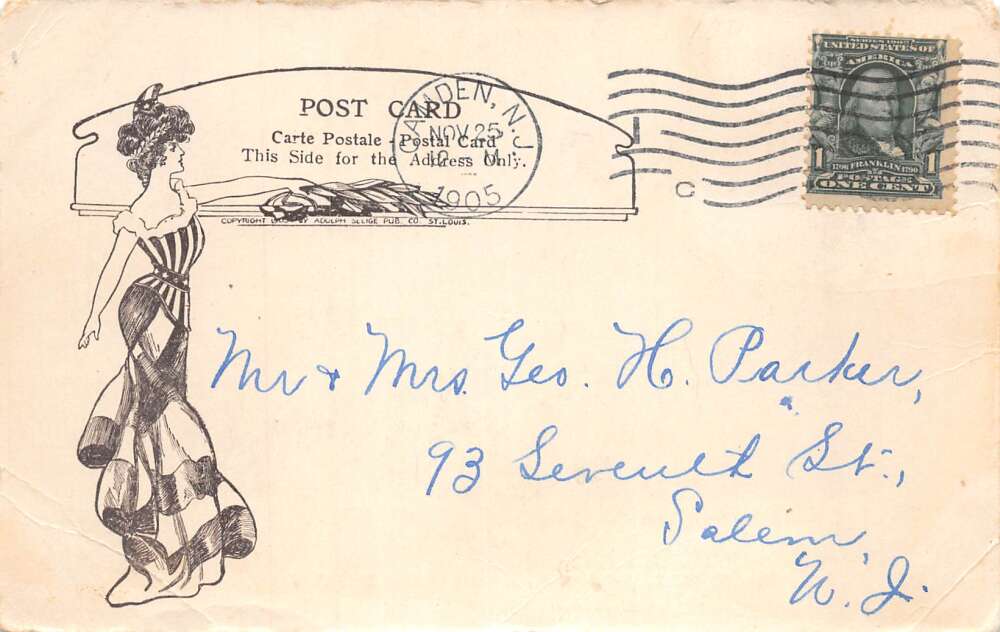 POST CARD
Carte Postale - Postal Card
This Side for the Address Only.
COPYRIGHT BY ADOLPH SELIGE PUB. CO. ST. LOUIS.
CAMDEN, N.J.
NOV 25
M
1905
C
SERIES 1902
UNITED STATES OF
AMERICA
1706 FRANKLIN 1790
1 POSTAGE 1
ONE CENT
Mr & Mrs. Geo. H. Parker,
93 Seventh St.,
Salem,
N. J.